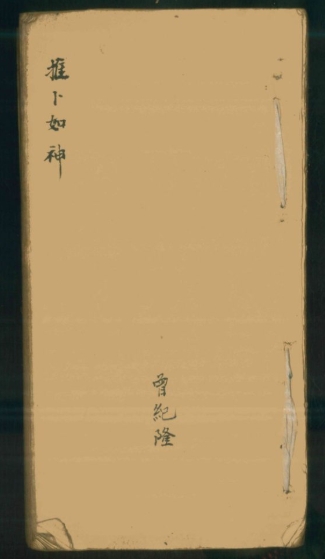 推卜如神
曾紀隆